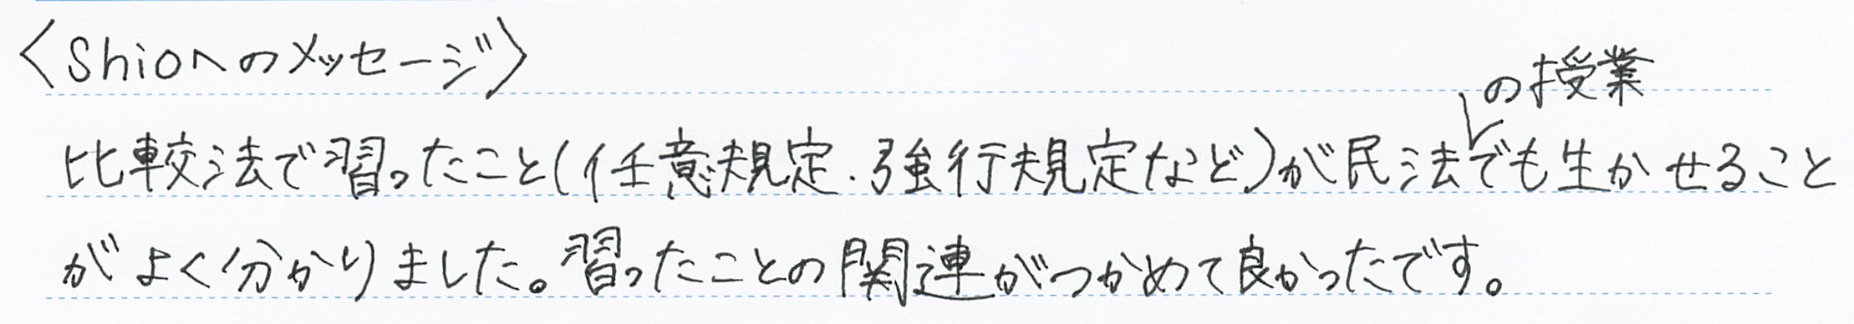 〈Shioへのメッセージ〉
比較法で習ったこと(任意規定・強行規定など)が民法の授業でも生かせること
がよく分かりました。習ったことの関連がつかめて良かったです。